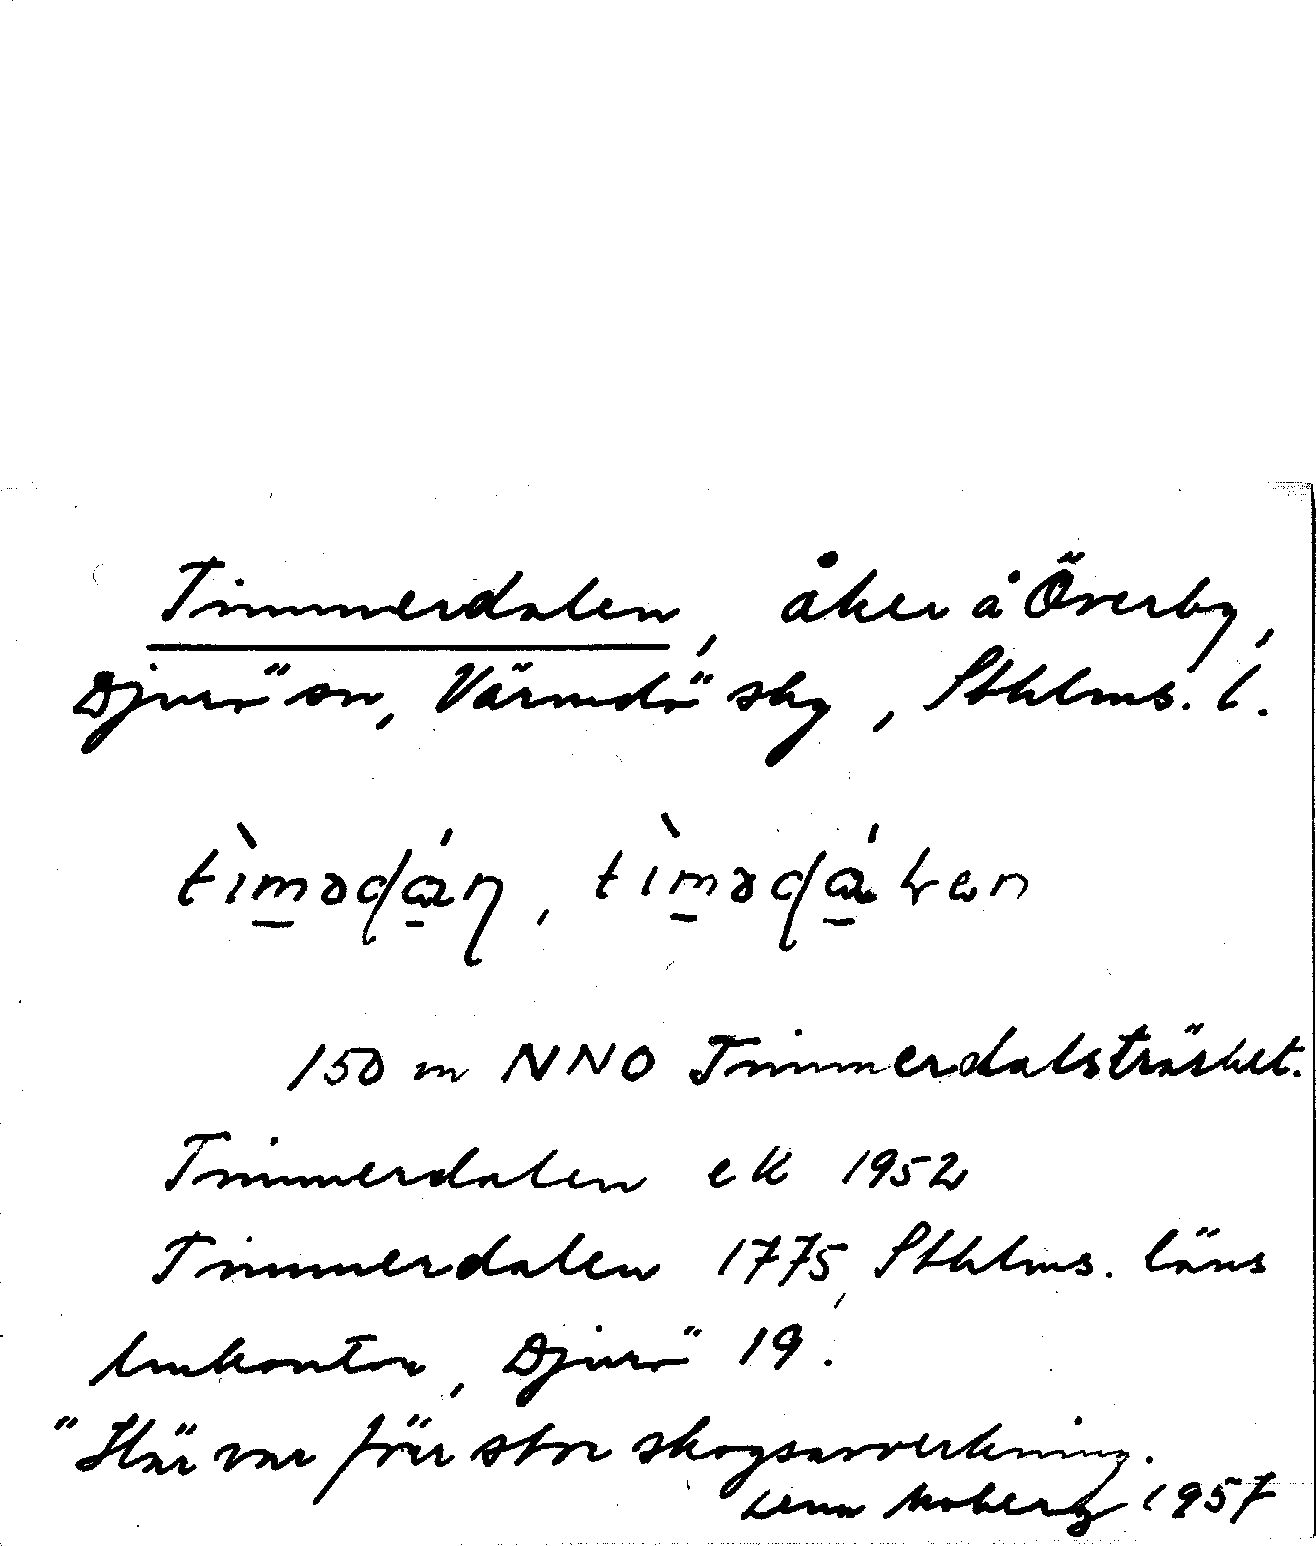 Timmerdalen, åker å Överby,
Djurö sn, Värmdö skg, Sthlms. l.
150 m NNO Timmerdalsträsket.
Timmerdalen ek 1952
Timmerdalen 1775, Sthlms. läns
lmkontor, Djurö 19.
"Här var förr stor skogsavverkning.
Lena Moberg 1957